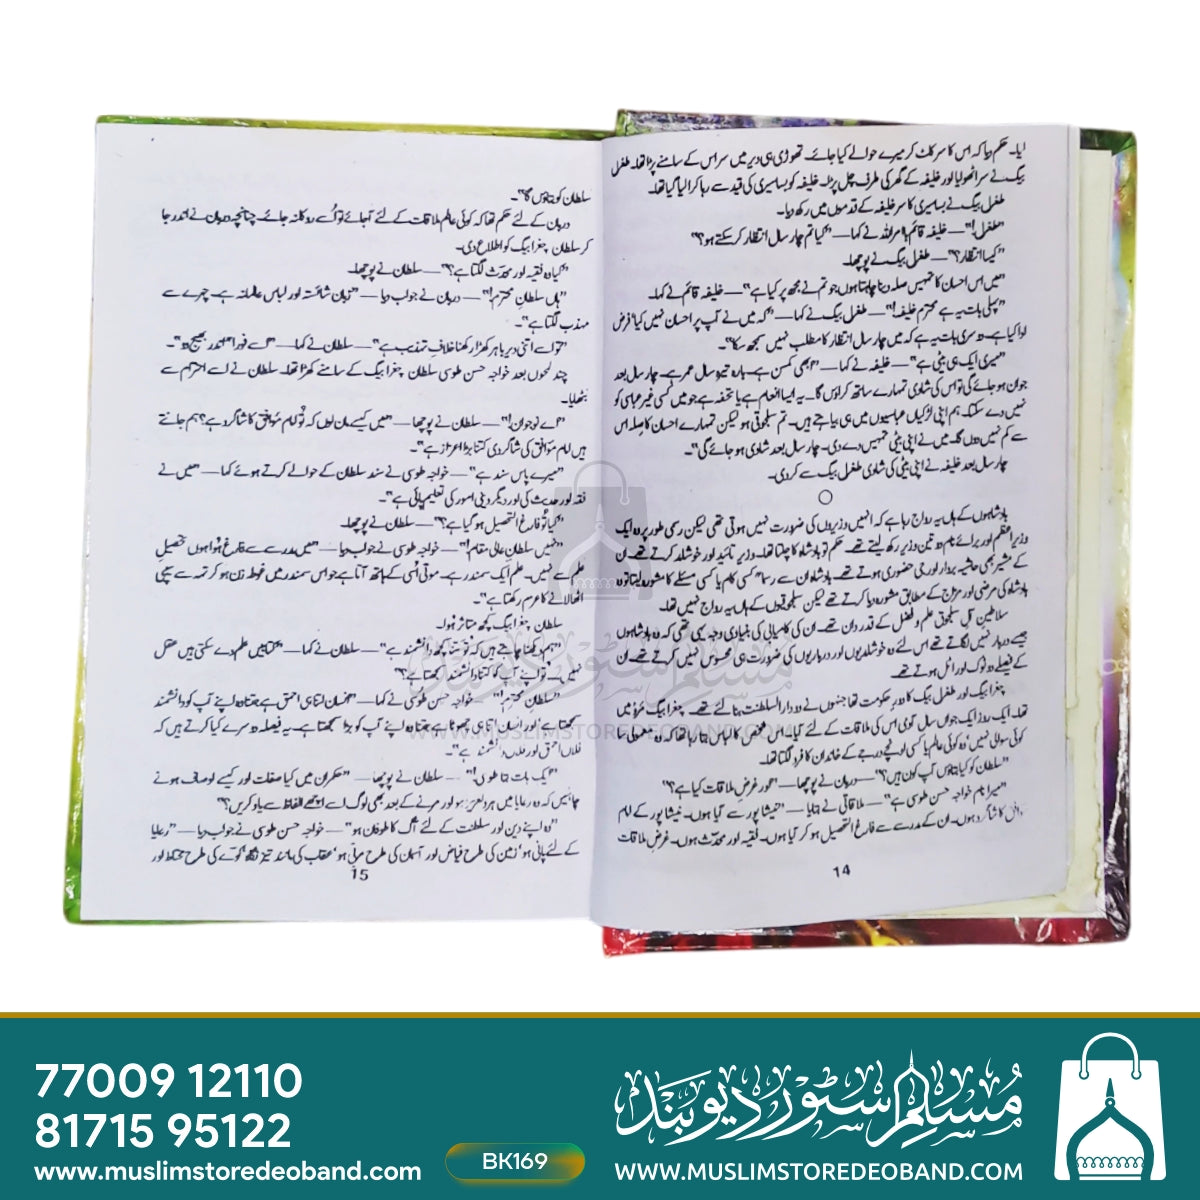 لیا۔ حکم دیا کہ اس کا سر کاٹ کر میرے حوالے کیا جائے۔ تھوڑی ہی دیر میں سر اس کے سامنے پڑا تھا۔ طغرل
بیگ نے سر اٹھوایا اور خلیفہ کے گھر کی طرف چل پڑا۔ خلیفہ کو بساسیری کی قید سے رہا کرا لیا گیا تھا۔
طغرل بیگ نے بساسیری کا سر خلیفہ کے قدموں میں رکھ دیا۔
"طغرل!"— خلیفہ قائم بامر اللہ نے کہا— "کیا تم چار سال انتظار کر سکتے ہو؟"
"کیسا انتظار؟"— طغرل بیگ نے پوچھا۔
"میں اس احسان کا تمہیں صلہ دینا چاہتا ہوں جو تم نے مجھ پر کیا ہے"— خلیفہ قائم نے کہا۔
"پہلی بات یہ ہے محترم خلیفہ!"— طغرل بیگ نے کہا— "کہ میں نے آپ پر احسان نہیں کیا' فرض
ادا کیا ہے۔ دوسری بات یہ ہے کہ میں چار سال انتظار کا مطلب نہیں سمجھ سکا"۔
"میری ایک ہی بیٹی ہے"— خلیفہ نے کہا— "ابھی کمسن ہے۔ بارہ تیرہ سال عمر ہے۔ چار سال بعد
جوان ہو جائے گی تو اس کی شادی تمہارے ساتھ کراؤں گا۔ یہ ایسا انعام ہے یا تحفہ ہے جو میں کسی غیر عباسی کو
نہیں دے سکتا۔ ہم اپنی لڑکیاں عباسیوں میں ہی بیاہتے ہیں۔ تم سلجوقی ہو لیکن تمہارے احسان کا صلہ اس
سے کم نہیں دوں گا۔ میں نے اپنی بیٹی تمہیں دے دی۔ چار سال بعد شادی ہو جائے گی"۔
چار سال بعد خلیفہ نے اپنی بیٹی کی شادی طغرل بیگ سے کر دی۔
○
بادشاہوں کے ہاں یہ رواج رہا ہے کہ انہیں وزیروں کی ضرورت نہیں ہوتی تھی لیکن رسمی طور پر وہ ایک
وزیراعظم اور برائے نام دو تین وزیر رکھ لیتے تھے۔ حکم تو بادشاہ کا چلتا تھا۔ وزیر تائید اور خوشامد کرتے تھے۔ ان
کے مشیر بھی حاشیہ بردار اور جی حضوری ہوتے تھے۔ بادشاہ ان سے رسماً کسی کام یا کسی مسئلے کا مشورہ لیتا تو وہ
بادشاہ کی مرضی اور مزاج کے مطابق مشورہ دیا کرتے تھے لیکن سلجوقیوں کے ہاں یہ رواج نہیں تھا۔
سلاطین آل سلجوق علم و فضل کے قدردان تھے۔ ان کی کامیابی کی بنیادی وجہ یہی تھی کہ وہ بادشاہوں
جیسے دربار نہیں لگاتے تھے اس لئے وہ خوشامدیوں اور درباریوں کی ضرورت ہی محسوس نہیں کرتے تھے۔ ان
کے فیصلے دو ٹوک اور اٹل ہوتے تھے۔
چغرا بیگ اور طغرل بیگ کا دور حکومت تھا جنہوں نے دو دارالسلطنت بنائے تھے۔ چغرا بیگ مرو میں
تھا۔ ایک روز ایک جواں سال آدمی اس کی ملاقات کے لئے گیا۔ اس شخص کا لباس بتا رہا تھا کہ وہ معمولی سا
کوئی سوالی نہیں' وہ کوئی عالم یا کسی اونچے درجے کے خاندان کا فرد لگتا تھا۔
"سلطان کو کیا بتاؤں آپ کون ہیں؟"— دربان نے پوچھا— "اور غرضِ ملاقات کیا ہے؟"
"میرا نام خواجہ حسن طوسی ہے"— ملاقاتی نے بتایا— "نیشاپور سے آیا ہوں۔ نیشاپور کے امام
کا شاگرد ہوں۔ ان کے مدرسے سے فارغ التحصیل ہو کر آیا ہوں۔ فقیہ اور محدث ہوں۔ غرضِ ملاقات
14
سلطان کو بتاؤں گا"۔
دربان کے لئے حکم تھا کہ کوئی عالم ملاقات کے لئے آ جائے تو اُسے روکا نہ جائے۔ چنانچہ دربان نے اندر جا
کر سلطان چغرا بیگ کو اطلاع دی۔
"کیا وہ فقیہ اور محدث لگتا ہے؟"— سلطان نے پوچھا۔
"ہاں سلطانِ محترم!"— دربان نے جواب دیا— "زبان شائستہ اور لباس عالمانہ ہے۔ چہرے سے
مہذب لگتا ہے"۔
"تو اسے اتنی دیر باہر کھڑا رکھنا خلافِ تہذیب ہے"— سلطان نے کہا— "اسے فوراً اندر بھیج دو"۔
چند لمحوں بعد خواجہ حسن طوسی سلطان چغرا بیگ کے سامنے کھڑا تھا۔ سلطان نے اسے احترام سے
بٹھایا۔
"اے نوجوان!"— سلطان نے پوچھا— "میں کیسے مان لوں کہ تُو امام موفق کا شاگرد ہے؟ ہم جانتے
ہیں امام موفق کی شاگردی کتنا بڑا اعزاز ہے"۔
"میرے پاس سند ہے"— خواجہ طوسی نے سند سلطان کے حوالے کرتے ہوئے کہا— "میں نے
فقہ اور حدیث کی اور دیگر دینی امور کی تعلیم پائی ہے"۔
"کیا تُو فارغ التحصیل ہو گیا ہے؟"— سلطان نے پوچھا۔
"نہیں سلطان عالی مقام!"— خواجہ طوسی نے جواب دیا— "میں مدرسے سے فارغ ہوا ہوں تحصیلِ
علم سے نہیں۔ علم ایک سمندر ہے۔ موتی اُسی کے ہاتھ آتا ہے جو اس سمندر میں غوطہ زن ہو کر تہہ سے سیپی
اٹھا لانے کا عزم رکھتا ہے"۔
سلطان چغرا بیگ کچھ متاثر ہوا۔
"ہم دیکھنا چاہتے ہیں کہ تُو کتنا کچھ دانشمند ہے"— سلطان نے کہا— "کتابیں علم دے سکتی ہیں عقل
نہیں۔ تُو اپنے آپ کو کتنا دانشمند سمجھتا ہے؟"
"سلطان محترم!"— خواجہ حسن طوسی نے کہا— "انسان اتنا ہی احمق ہے جتنا وہ اپنے آپ کو دانشمند
سمجھتا ہے' اور انسان اتنا ہی چھوٹا ہے جتنا وہ اپنے آپ کو بڑا سمجھتا ہے۔ یہ فیصلہ دوسرے کیا کرتے ہیں کہ
فلاں احمق اور فلاں دانشمند ہے"۔
"ایک بات بتا طوسی!"— سلطان نے پوچھا— "حکمران میں کیا صفات اور کیسے اوصاف ہونے
چاہئیں کہ وہ رعایا میں ہر دلعزیز ہو اور مرنے کے بعد بھی لوگ اسے اچھے الفاظ سے یاد کریں؟"
"وہ اپنے دین اور سلطنت کے لئے آگ کا طوفان ہو"— خواجہ حسن طوسی نے جواب دیا— "رعایا
کے لئے پانی ہو' زمین کی طرح فیاض اور آسمان کی طرح مہربان ہو' عقاب کی مانند تیز نگاہ' کوّے کی طرح محتاط اور
15
مسلم سٹور دیوبند
WWW.MUSLIMSTOREDEOBAND.COM
77009 12110
81715 95122
www.muslimstoredeoband.com
BK169
مسلم سٹور دیوبند
WWW.MUSLIMSTOREDEOBAND.COM